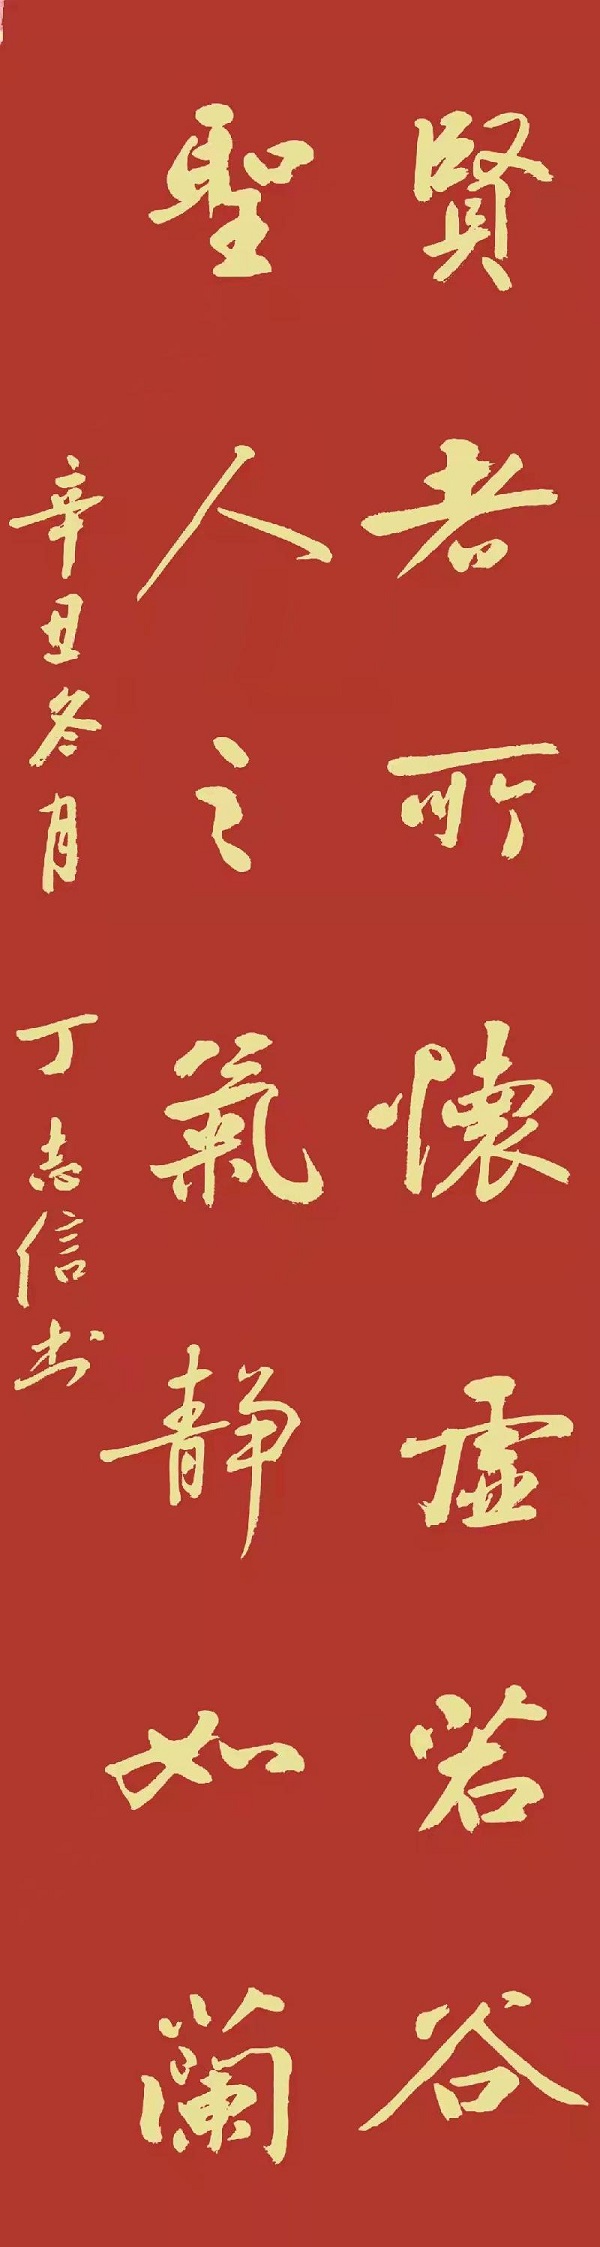 賢者所懷虛若谷
聖人之氣静如蘭
辛丑冬月 丁志信书